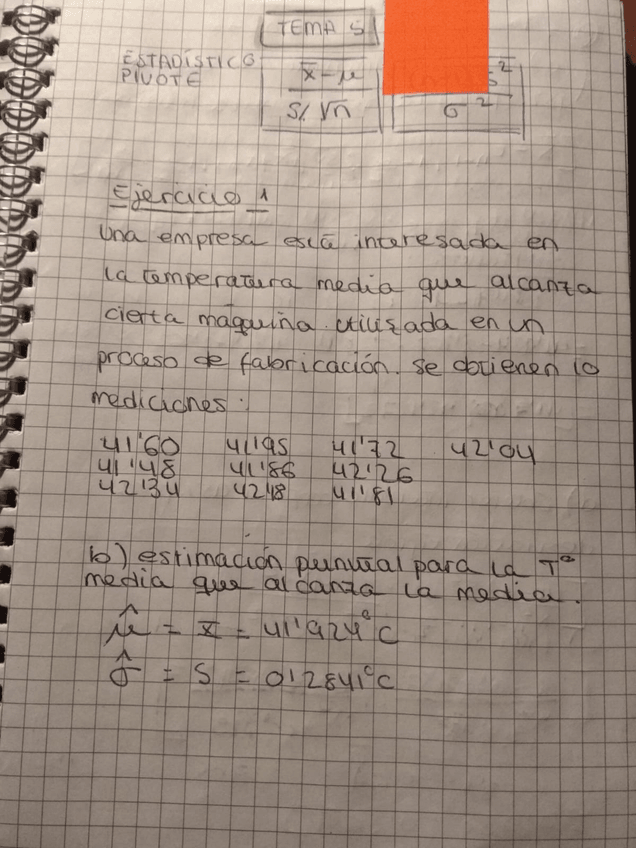 TEMA 5
ESTADÍSTICO
PIVOTE
x̄ - μ
S/√n
s²
σ²
Ejercicio 1
Una empresa está interesada en
la temperatura media que alcanza
cierta máquina utilizada en un
proceso de fabricación. se obtienen 10
mediciones:
41'60 41'95 41'72 42'04
41'48 41'86 42'26
42'34 42'18 41'81
b) estimación puntual para la Tª
media que alcanza la media.
μ̂ = x̄ = 41'924°C
σ̂ = S = 0'2841°C